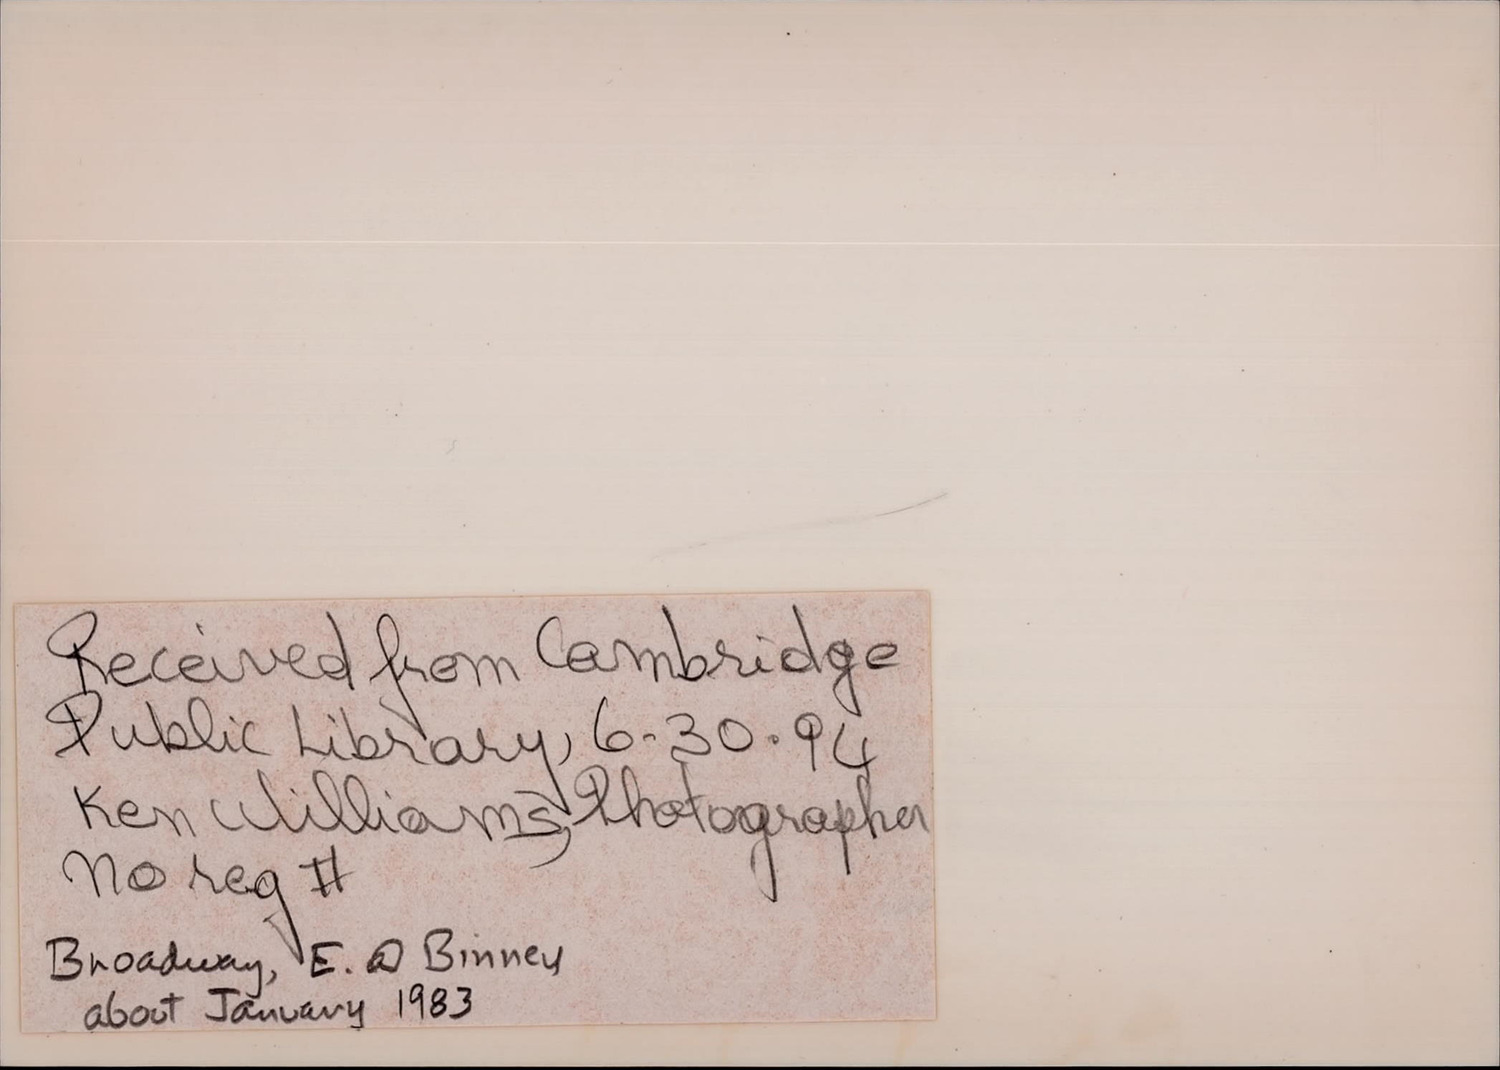 Received from Cambridge
Public Library, 6-30-94
Ken Williams, Photographer
No reg #
Broadway, E. @ Binney
about January 1983